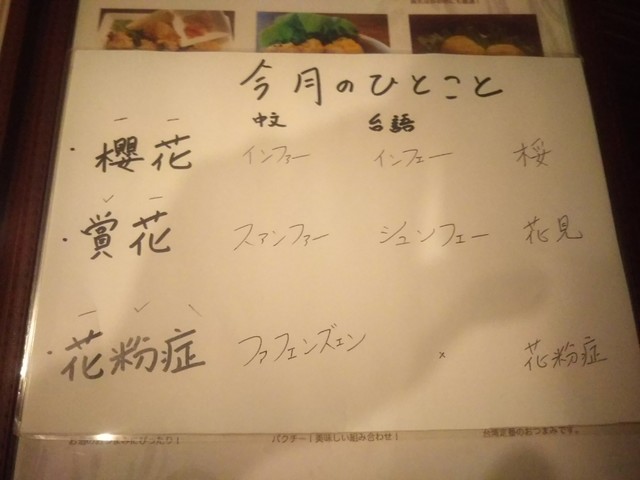 今月のひとこと
中文 台語
・櫻花 インファー インフェー 桜
・賞花 スァンファー シュンフェー 花見
・花粉症 ファフェンズェン × 花粉症
パクチー!美味しい組み合わせ!
台湾定番のおつまみです。